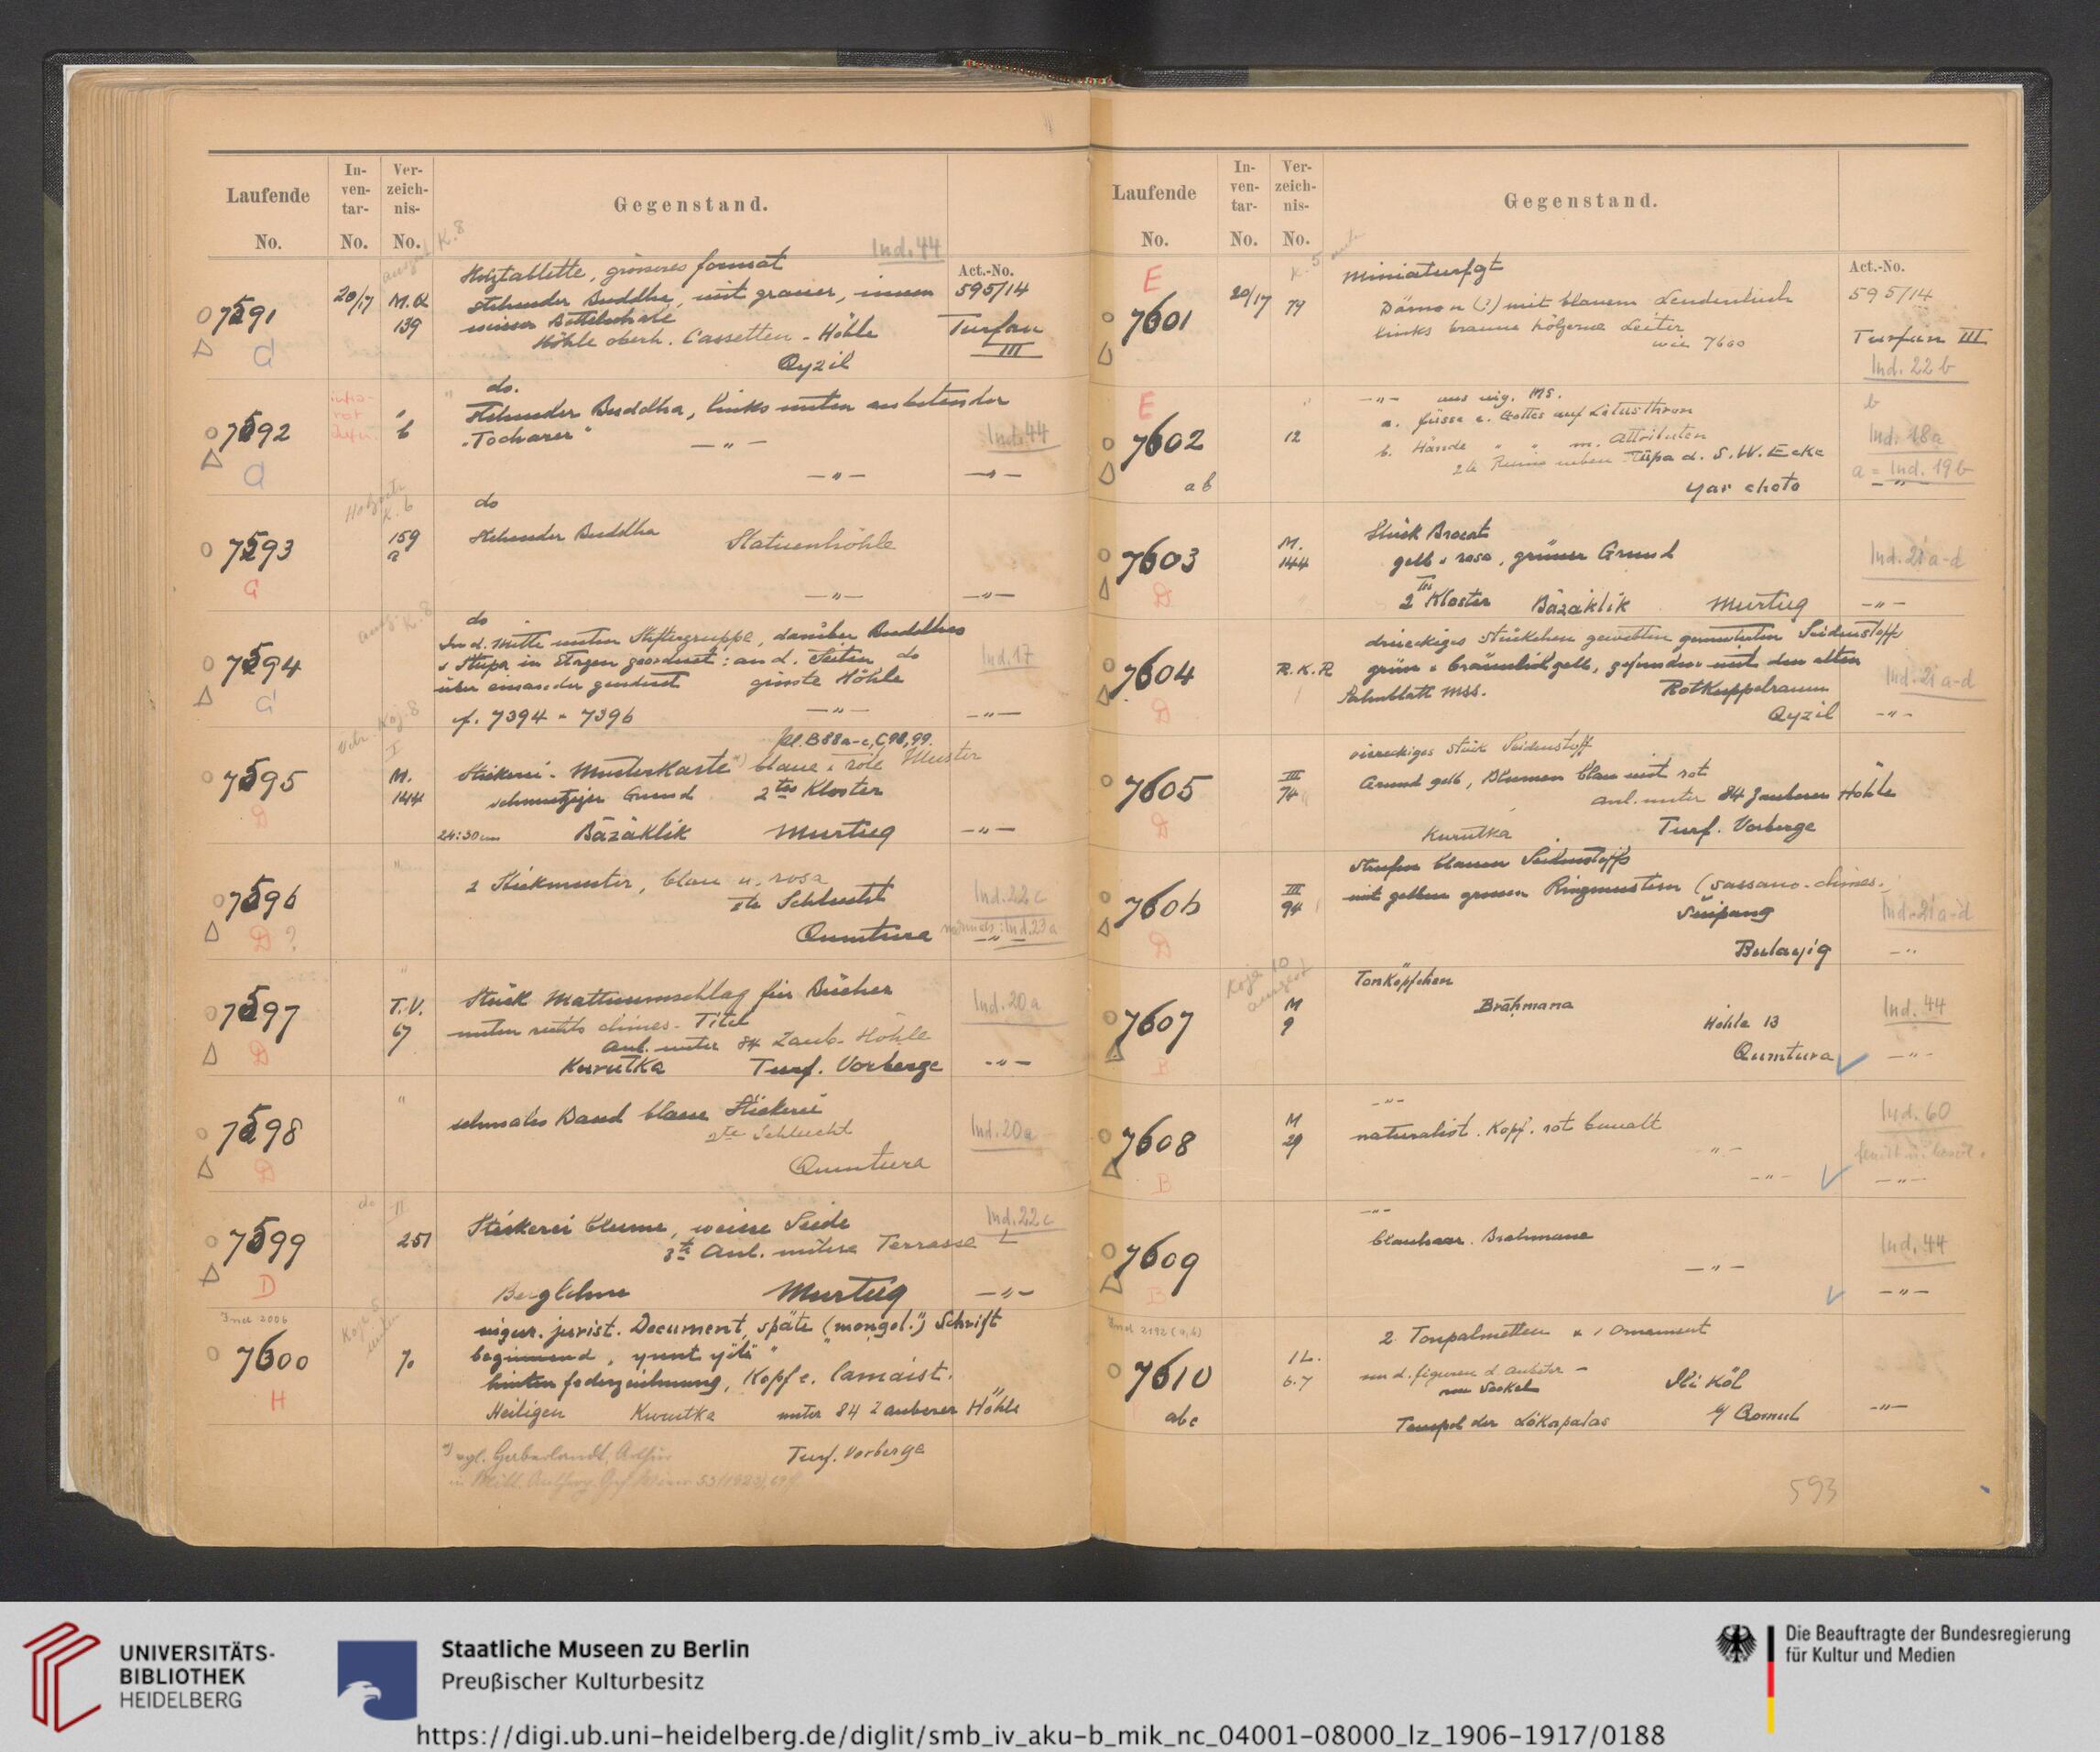 Laufende
No.
In-
ven-
tar-
No.
Ver-
zeich-
nis-
No.
Gegenstand.
K. 8
Ind. 44
Act.-No.
7591
20/17
M.Q.
139
Holztablette, grösseres format
stehender Buddha, mit grauer, innen
weisser Bettelschale
Höhle oberh. Cassetten-Höhle
Qyzil
595/14
Turfan
III
d
7592
6
do.
Stehender Buddha, links unten anbetender
"Tocharer" — " —
Ind. 44
— " —
— " —
d
7593
K. 6
159
a
do
Stehender Buddha Statuenhöhle
— " —
— " —
G
7594
K. 8
do
In d. Mitte unten Stiftergruppe, darüber Buddhas
u Stupa in Etagen geordnet: an d. Seiten do
über einander geordnet
Höhle
Ind. 17
cf. 7394 - 7396
— " —
— " —
G
7595
I
M.
144
B88a-c, C98, 99.
Stickerei-Musterkarte *) blaue u. rote Muster
schmutziger Grund 2tes Kloster
24:30 cm Bäzäklik Murtuq
— " —
D
7596
"
2 Stickmuster, blau u. rosa
IIte Schlucht
Qumtura
Ind. 22 c
Ind. 23 a
— " —
D ?
7597
"
T.V.
67
Stück Mattenumschlag für Bücher
unten rechts chines. Titel
Anl. unter 84 Zaub. Höhle
Kurutka Turf. Vorberge
Ind. 20 a
— " —
D
7598
"
schmales Band blaue Stickerei
2te Schlucht
Qumtura
Ind. 20 a
D
7599
do
II
251
Stickerei blume, weisse Seide
3te Anl. mitlere Terrasse L
Berglehne Murtuq
Ind. 22 c
— " —
D
2006
7600
70
uigur. jurist. Document, späte (mongol.") Schrift
beginnend, "yunt yïlï"
hinten federzeichnung, Kopf e. lamaist.
Heiligen Kurutka unter 84 Zauberer Höhle
Turf. Vorberge
H
*) vgl. Gerberlandt, Arthur
in Mitt. Anthrop. Ges. Wien 53 (1923),
Laufende
No.
In-
ven-
tar-
No.
Ver-
zeich-
nis-
No.
Gegenstand.
Act.-No.
K. 5
E
7601
20/17
74
Miniaturfgt
Dämon (?) mit blauem Lendentuch
links braune hölzerne Leiter
wie 7600
595/14
Turfan III
Ind. 22 b
E
7602
ab
12
— " — aus uig. MS.
a. füsse e. Gottes auf Lotusthron
b. Hände " " m. Attributen
2te Ruine neben Stūpa d. S.W. Ecke
Yar choto
b
Ind. 18 a
a = Ind. 19 b
— " —
7603
M.
144
Stück Brocat
gelb u rosa, grüner Grund
2tes Kloster Bäzäklik Murtuq
Ind. 21 a-d
— " —
D
7604
R.K.R
dreieckiges Stückchen gewebten gemusterten Seidenstoffs
grün u bräunlichgelb, gefunden mit den alten
Palmblatt mss. Rotkuppelraum
Qyzil
Ind. 21 a-d
— " —
D
7605
III
74
viereckiges Stück Seidenstoff
Grund gelb, Blumen blau mit rot
anl. unter 84 Zauberer Höhle
Kurutka Turf. Vorberge
D
7606
III
94
Streifen blauen Seidenstoffs
mit gelben grossen Ringmustern (sassano-chines.
Šüipang
Bulayiq
Ind. 21 a-d
— "
D
Koje 10
7607
M
9
Tonköpfchen
Brāhmana
Höhle 13
Qumtura
Ind. 44
— " —
7608
M
29
— " —
naturalist. Kopf. rot bemalt
— " —
— " —
Ind. 60
— " —
B
7609
— " —
blauhaar. Brahmane
— " —
Ind. 44
— " —
B
2192 (a,b)
7610
abc
1L.
6.7
2 Tonpalmetten u. 1 Ornament
von d. figuren d. anbeter —
vom Sockel
Ili Köl
Tempel der Lōkapalas
b/ Qomul
— " —
593
UNIVERSITÄTS-
BIBLIOTHEK
HEIDELBERG
Staatliche Museen zu Berlin
Preußischer Kulturbesitz
Die Beauftragte der Bundesregierung
für Kultur und Medien
https://digi.ub.uni-heidelberg.de/diglit/smb_iv_aku-b_mik_nc_04001-08000_lz_1906-1917/0188